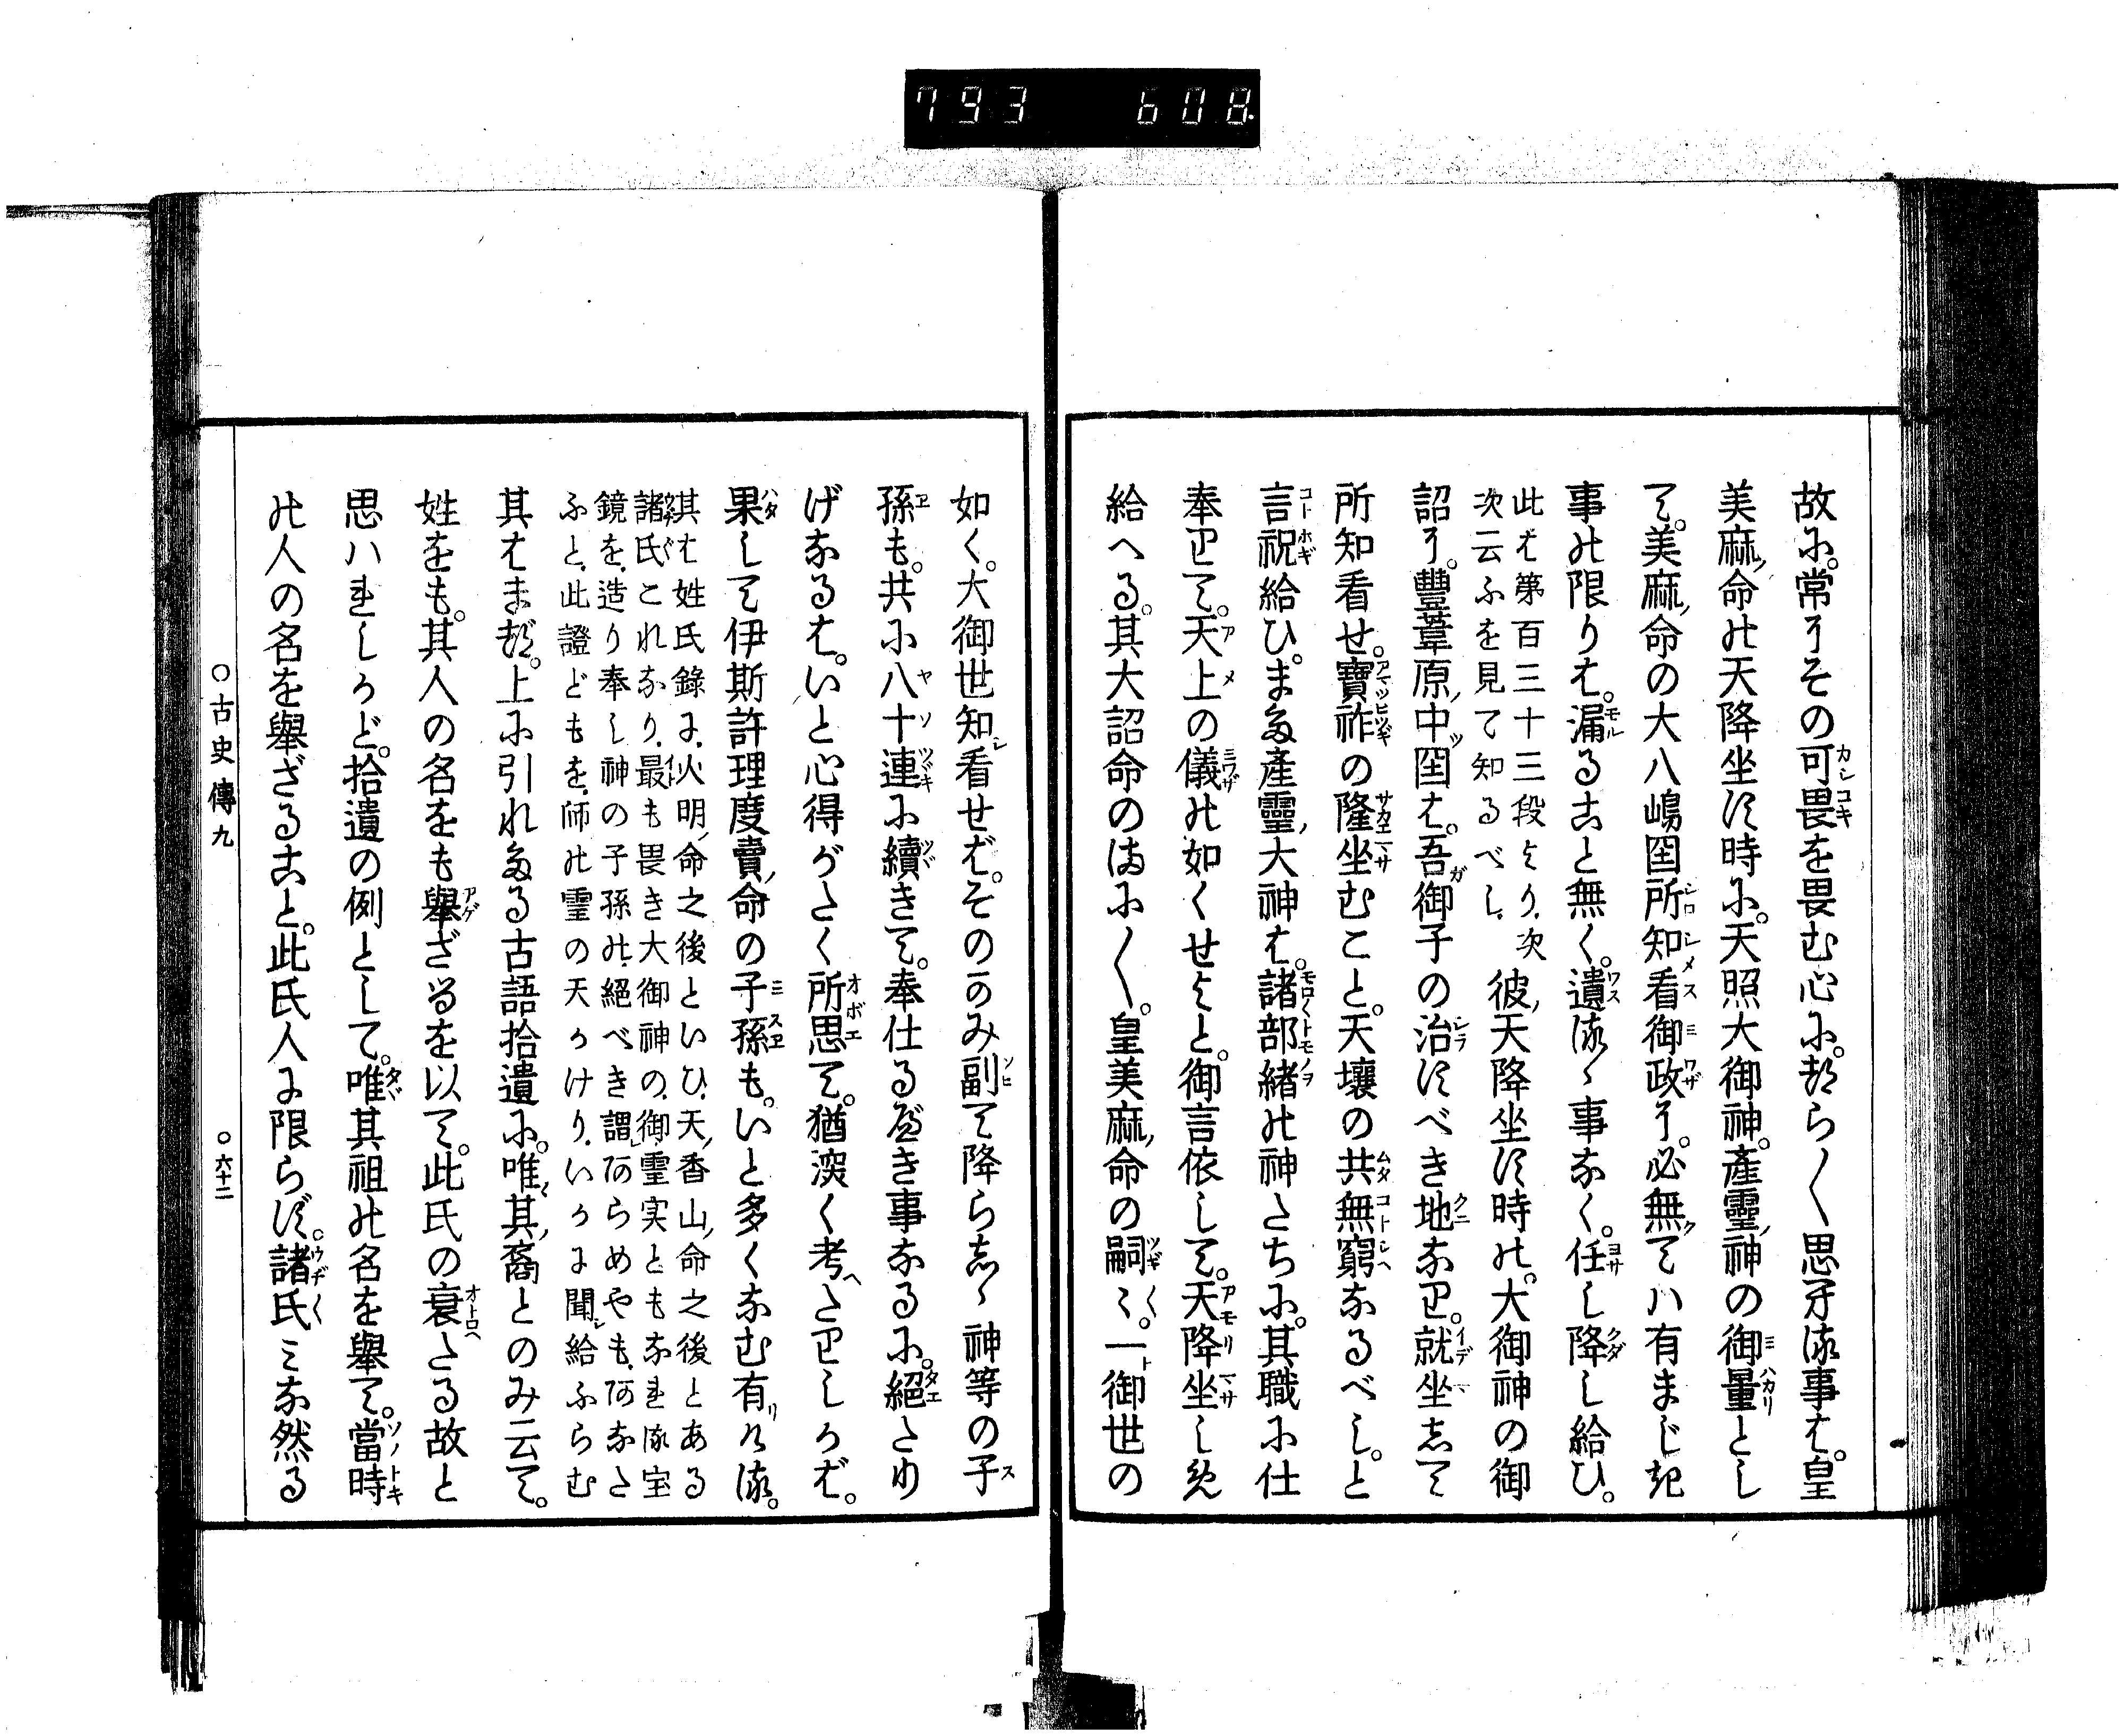 793 608
故に。常にその可畏を畏む心に。都らく思ひ居る事は。皇
美麻ノ命の天降坐す時に。天照大御神。産霊ノ神の御量とし
て。美麻ノ命の大八嶋国所知看御政に。必無てハ有まじき
事の限りは。漏ること無く。遺るゝ事なく。任し降し給ひ。
此は第百三十三段より。次
次云ふを見て知るべし。
彼ノ天降坐す時の。大御神の御
詔に。豊葦原ノ中国は。吾御子の治すべき地なり。就坐して
所知看せ。寶祚の隆坐むこと。天壌の共無窮なるべし。と
言祝給ひ。また産霊ノ大神は。諸部緒の神たちに。其職に仕
奉りて。天上の儀の如くせよと。御言依して。天降坐しめ
給へる。其大詔命のまに〱。皇美麻ノ命の嗣々。一御世の
如く。大御世知看せば。そのかみ副て降らしゝ神等の子
孫も。共に八十連に續きて。奉仕るべき事なるに。絶たり
げなるは。いと心得がたく所思て。猶深く考へたりしかば。
果して伊斯許理度賣ノ命の子孫も。いと多くなむ有りける。
其は姓氏錄に、火明ノ命之後といひ、天ノ香山ノ命之後とある
諸氏これなり、最も畏き大御神の、御霊実ともなれる宝
鏡を、造り奉し神の子孫の、絶べき謂あらめやも、あなた
ふと、此證どもを、師の霊の天かけり、いかに聞給ふらむ
其はまづ。上に引れたる古語拾遺に。唯其ノ裔とのみ云て。
姓をも。其人の名をも舉ざるを以て。此氏の衰たる故と
思ハれしかど。拾遺の例として。唯其祖の名を舉て。當時
の人の名を舉ざること。此氏人に限らず。諸氏ミな然る
○古史傳九 ○六十二